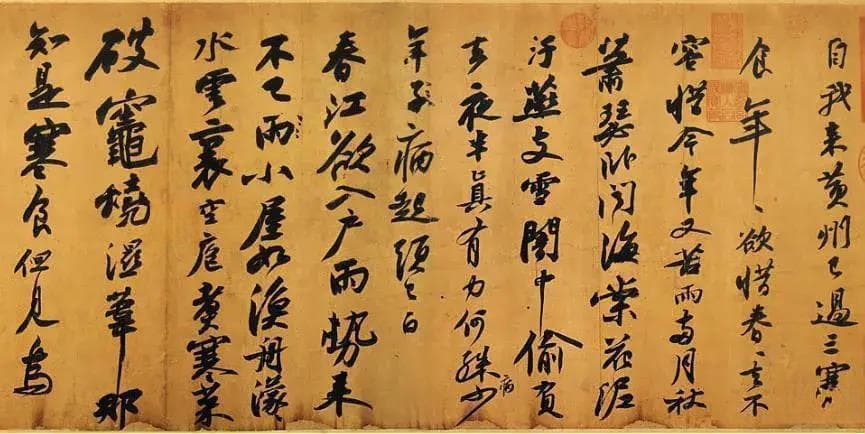 自我来黄州已過三寒
食年〻欲惜春〻去不
容惜今年又苦雨兩月秋
蕭瑟卧聞海棠花泥
汙燕支雪闇中偷負
去夜半真有力何殊病少
年子病起頭已白
春江欲入户雨勢来
不已雨小屋如漁舟濛〻
水雲裏空庖煮寒菜
破竈燒濕葦那
知是寒食但見烏